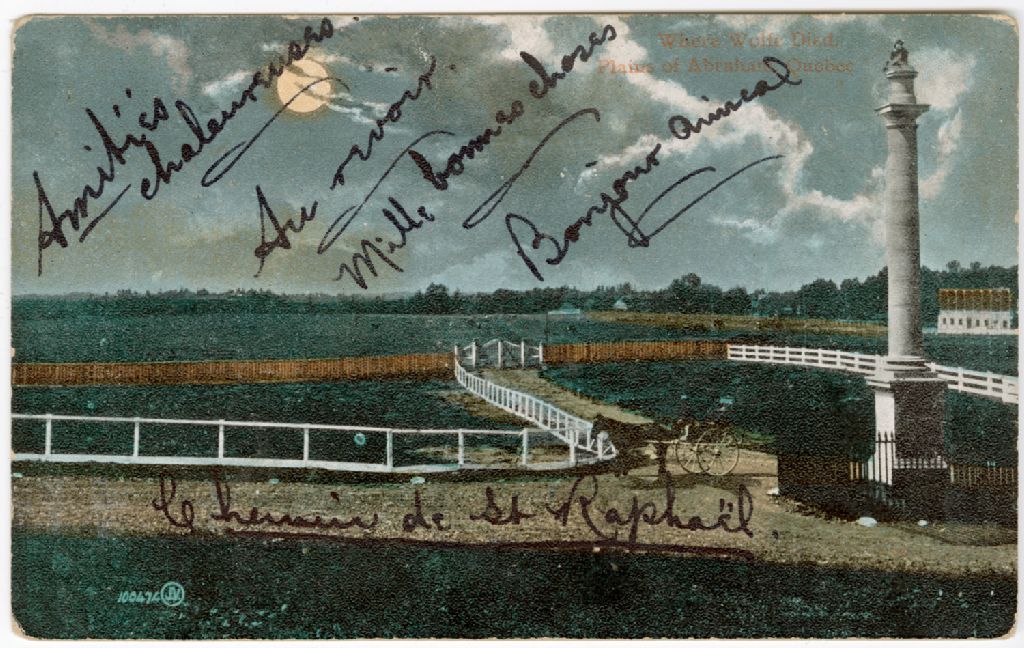 Where Wolfe Died.
Plains of Abraham, Quebec
Amitiés
chaleureuses.
Au revoir.
Mille bonnes choses
Bonjour amical
Chemin de St Raphaël.
100474 JV